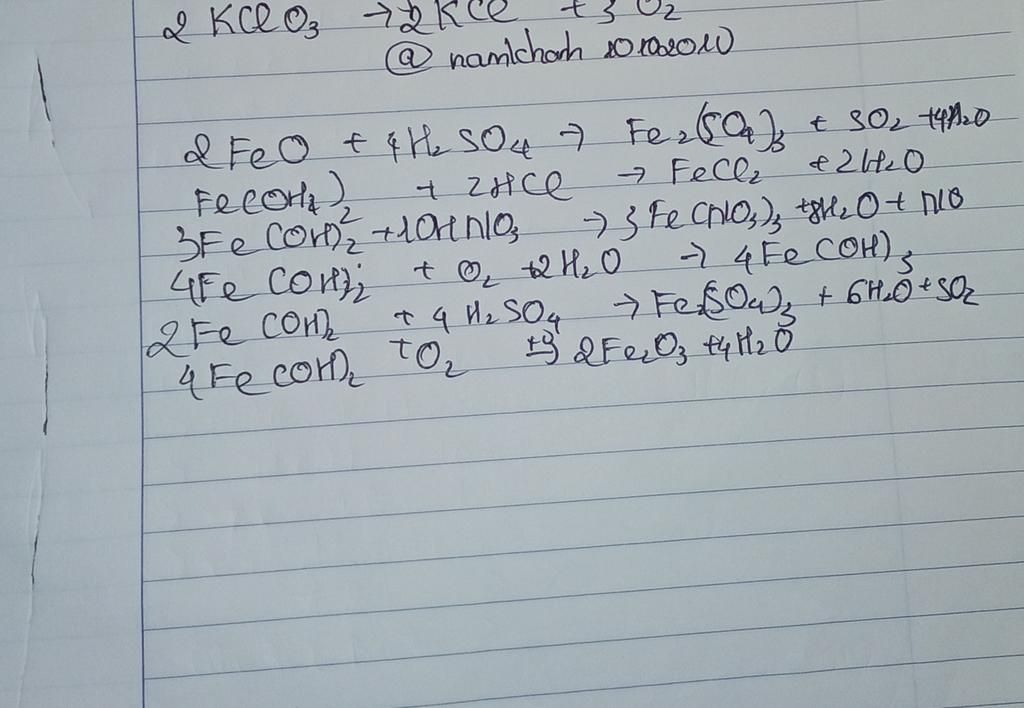 2 KClO3 → 2 KCl + 3 O2
@ namlchanh
2 FeO + 4H2SO4 → Fe2(SO4)3 + SO2 + 4H2O
Fe(OH2)2 + 2HCl → FeCl2 + 2H2O
3Fe(OH)2 + 10HNO3 → 3Fe(NO3)3 + 8H2O + NO
4Fe(OH)2 + O2 + 2H2O → 4Fe(OH)3
2Fe(OH)2 + 4H2SO4 → Fe2(SO4)3 + 6H2O + SO2
4Fe(OH)2 + O2 → 2Fe2O3 + 4H2O